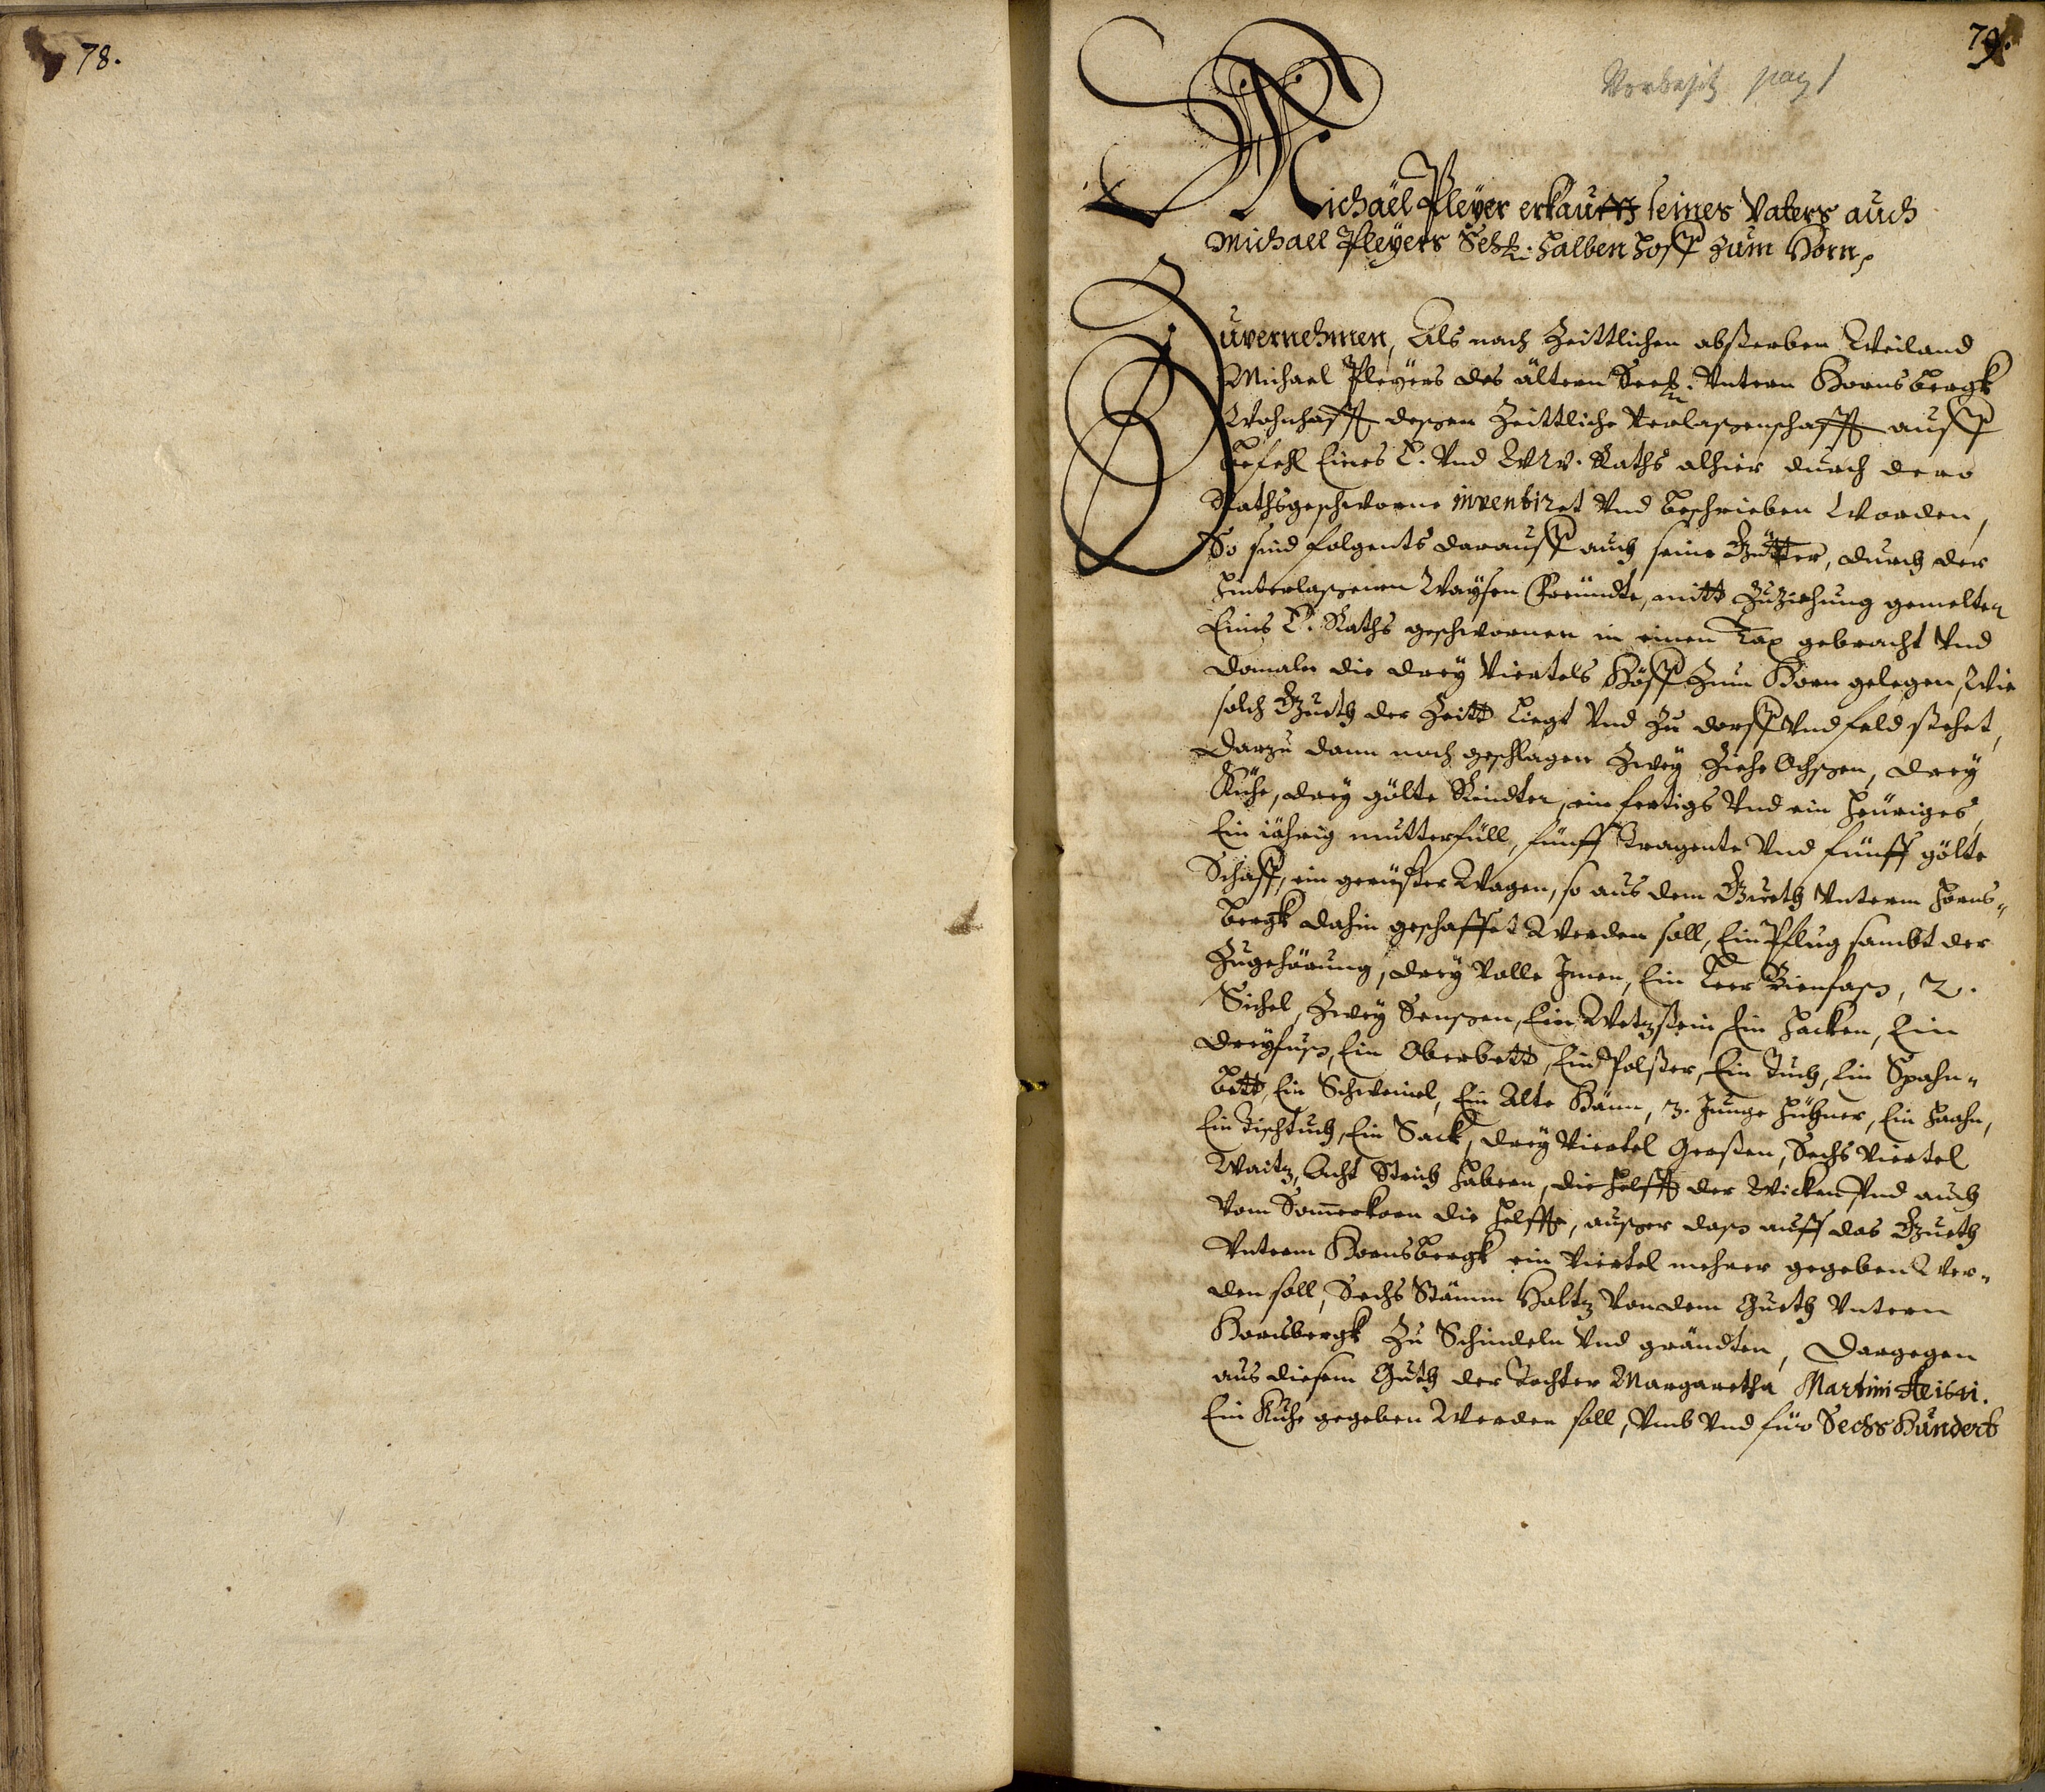 78.
79.
Vorbesitz pag 1
Michaël Pleÿer erkaufft seines Vaters auch
Michael Pleÿers Sehl: halben Hoff zum Horn,
Zuvernehmen, Als nach Zeittlichen absterben Weiland
Michael Pleÿers des ältern Seel: Vntern Hornsbergk
Wohnhafft dessen Zeittliche Verlassenschafft auff
Befehl Eines E. Vnd WW. Raths alhier durch dero
Rathsgeschworne inventiret Vnd beschrieben Worden,
So sind folgents darauff auch seine Gütter, durch der
Hinterlassenen Waÿsen Freundte, mitt Zuziehung gemelten
Eines E. Raths geschwornen in einen Tax gebracht Vnd
domalen die dreÿ Viertels Höff Zum Horn gelegen, Wie
solch Gueth der Zeitt Liegt Vnd Zu dorff Vnd feld stehet,
Darzu dann noch geschlagen Zweÿ Ziehe Ochssen, dreÿ
Kühe, dreÿ gölte Rindter, ein fertigs Vnd ein heüriges,
Ein iährig mutterfüll, fünff tragente Vnd fünff gölte
Schaff, ein gerüster Wagen, so aus dem Gueth Vnterm Horns-
bergk dahin geschaffet Werden soll, Ein Pflug sambt der
Zugehörung, dreÿ Volle Imen, Ein Leer Bienfass, 2.
Sichel, Zweÿ Senssen, Ein Wetzstein, Ein Hacken, Ein
Dreÿfuss, Ein Oberbett, Ein Polster, Ein Tuch, Ein Spahn-
bett, Ein Schweinel, Ein Alte Hänn, 3. Junge Hühner, Ein Haahn,
Ein Tischtuch, Ein Sack, dreÿ Viertel Gersten, Sechs Viertel
Waitz, Acht Strich Habern, die Helfft der Wicken Vnd auch
Vom Sommerkorn die Helffte, ausser dass auff das Gueth
Vnterm Hornsbergk ein Viertel mehrer gegeben Wer-
den soll, Sechs Stämm Holtz Von dem Gueth Vntern
Hornsbergk Zu Schindeln Vnd gründten, Dargegen
aus diesem Guth der Tochter Margaretha Martini Ao: 1641.
Ein Kuhe gegeben Werden soll, Vmb Vnd für Sechs Hundert